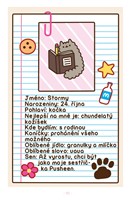 Jméno: Stormy
Narozeniny: 24. října
Pohlaví: kočka
Nejlepší na mně je: chundelatý
kožíšek
Kde bydlím: s rodinou
Koníčky: prohánění všeho
možného
Oblíbené jídlo: granulky a mlíčko
Oblíbené slovo:
Sen: Až vyrostu, chci být
jako moje sestřič-
ka Pusheen.